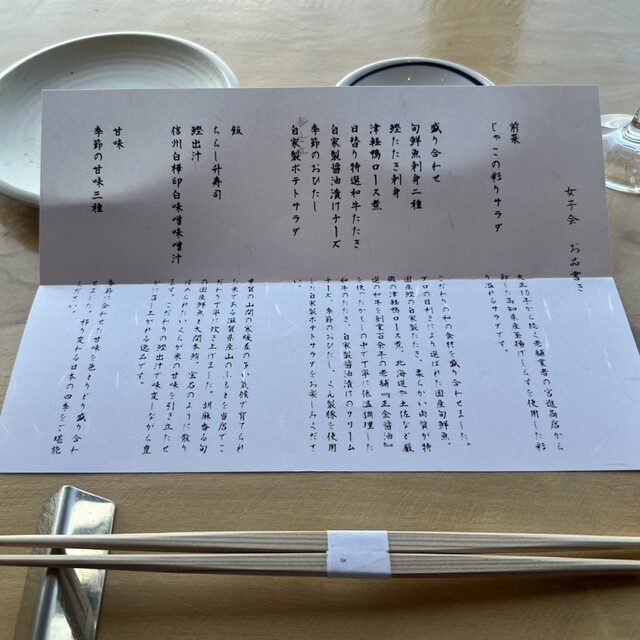 女子会 お品書き
前菜
じゃこの彩りサラダ
大正14年から続く老舗業者の宮遊商店から
卸した高知県産釜揚げしらすを使用した彩
り溢れるサラダです。
盛り合わせ
旬鮮魚刺身二種
鰹たたき刺身
津軽鴨ロース煮
日替り特選和牛たたき
自家製醤油漬けチーズ
季節のおひたし
自家製ポテトサラダ
こだわりの和の食材を盛り合わせました。
プロの目利きにより選ばれた国産旬鮮魚、
国産鰹の自家製たたき、柔らかい肉質が特
徴の津軽鴨ロース煮、北海道や土佐など厳
選の和牛を創業百余年の老舗『正金醤油』
を使ったかえしの中で丁寧に低温調理した
和牛のたたき、自家製醤油漬けのクリーム
チーズ、季節のおひたし、くん製豚を使用
した自家製ポテトサラダをお楽しみくださ
い。
飯
ちらし升寿司
鰹出汁
信州白樺印白味噌味噌汁
山間の寒暖差の多い気候で育てられ
た米である滋賀県産山のしもとを当店でこ
だわり丁寧に炊き上げました。胡麻香る旬
の国産鮮魚と大間本鮪、宝石のように散り
ばめられたいくらが米の甘味を引き立たせ
かえしがかりの鰹出汁で味変しながら召
し上がる逸品です。
甘味
季節の甘味二種
季節に合わせた甘味を色とりどり盛り合わ
せました。移り変わる日本の四季をご堪能
ください。